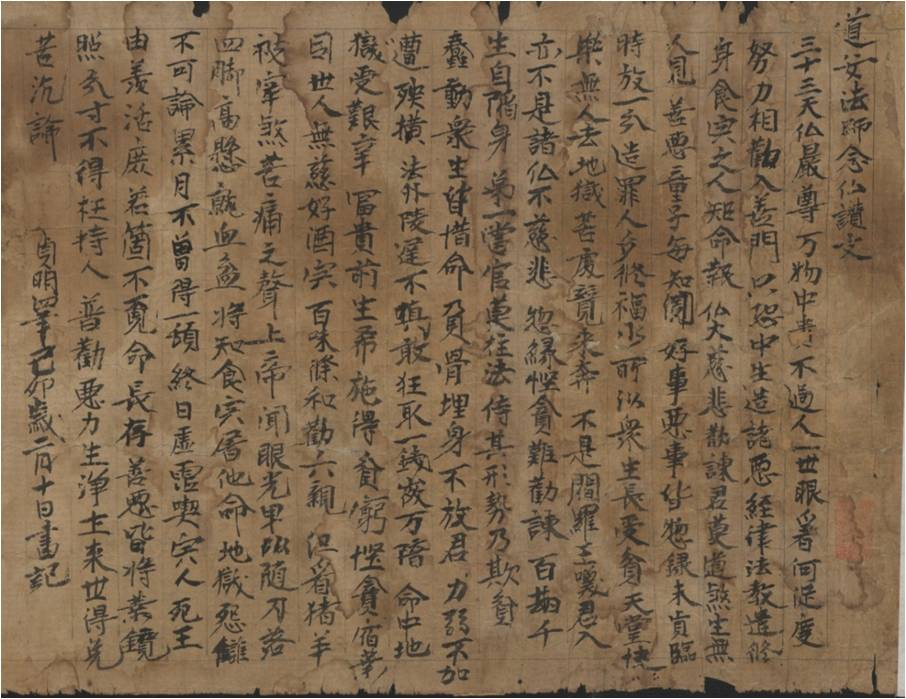 道安法師念仏讃文
三十三天仏最尊 万物中貴不過人 一世眼看何足度
努力相勸入善門 只恐中生造諸悪 経律法教遣修
身 食宍之人短命報 仏大慈悲勸諫君 莫道煞生無
人見 善悪童子每知聞 好事悪事皆惣録 未肯臨
時放一分 造罪人多修福少 所以衆生長受貧 天堂快
樂無人去 地獄苦處競來奔 不是閻羅王喚君入
亦不是諸仏不慈悲 惣緣慳貪難勸諫 百劫千
生自陷身 第一當官莫枉法 侍其形勢乃欺貧
蠢動衆生皆惜命 貧骨埋身不放君 力弱不加
遭殃橫 法外陵遲不 敢狂取一錢 万 命中地
獄受艱辛 冨貴前生布施得 貧窮慳貪宿業
因 世人無慈好酒宍 百味滌和勸六親 但看猪羊
被宰煞 苦痛之聲上帝聞 眼光早以随刀落
四脚高懸就血盆 將知食宍屠他命 地獄怨讎
不可論 累月不曽得一頓 終日虚霑喫宍人 死王
由羨活 若箇不覓命長存 善悪皆將業鏡
照 分寸不得枉持人 普勸悪力生淨土 來世得免
苦沉論
貞明四年己卯歳二月十日書記